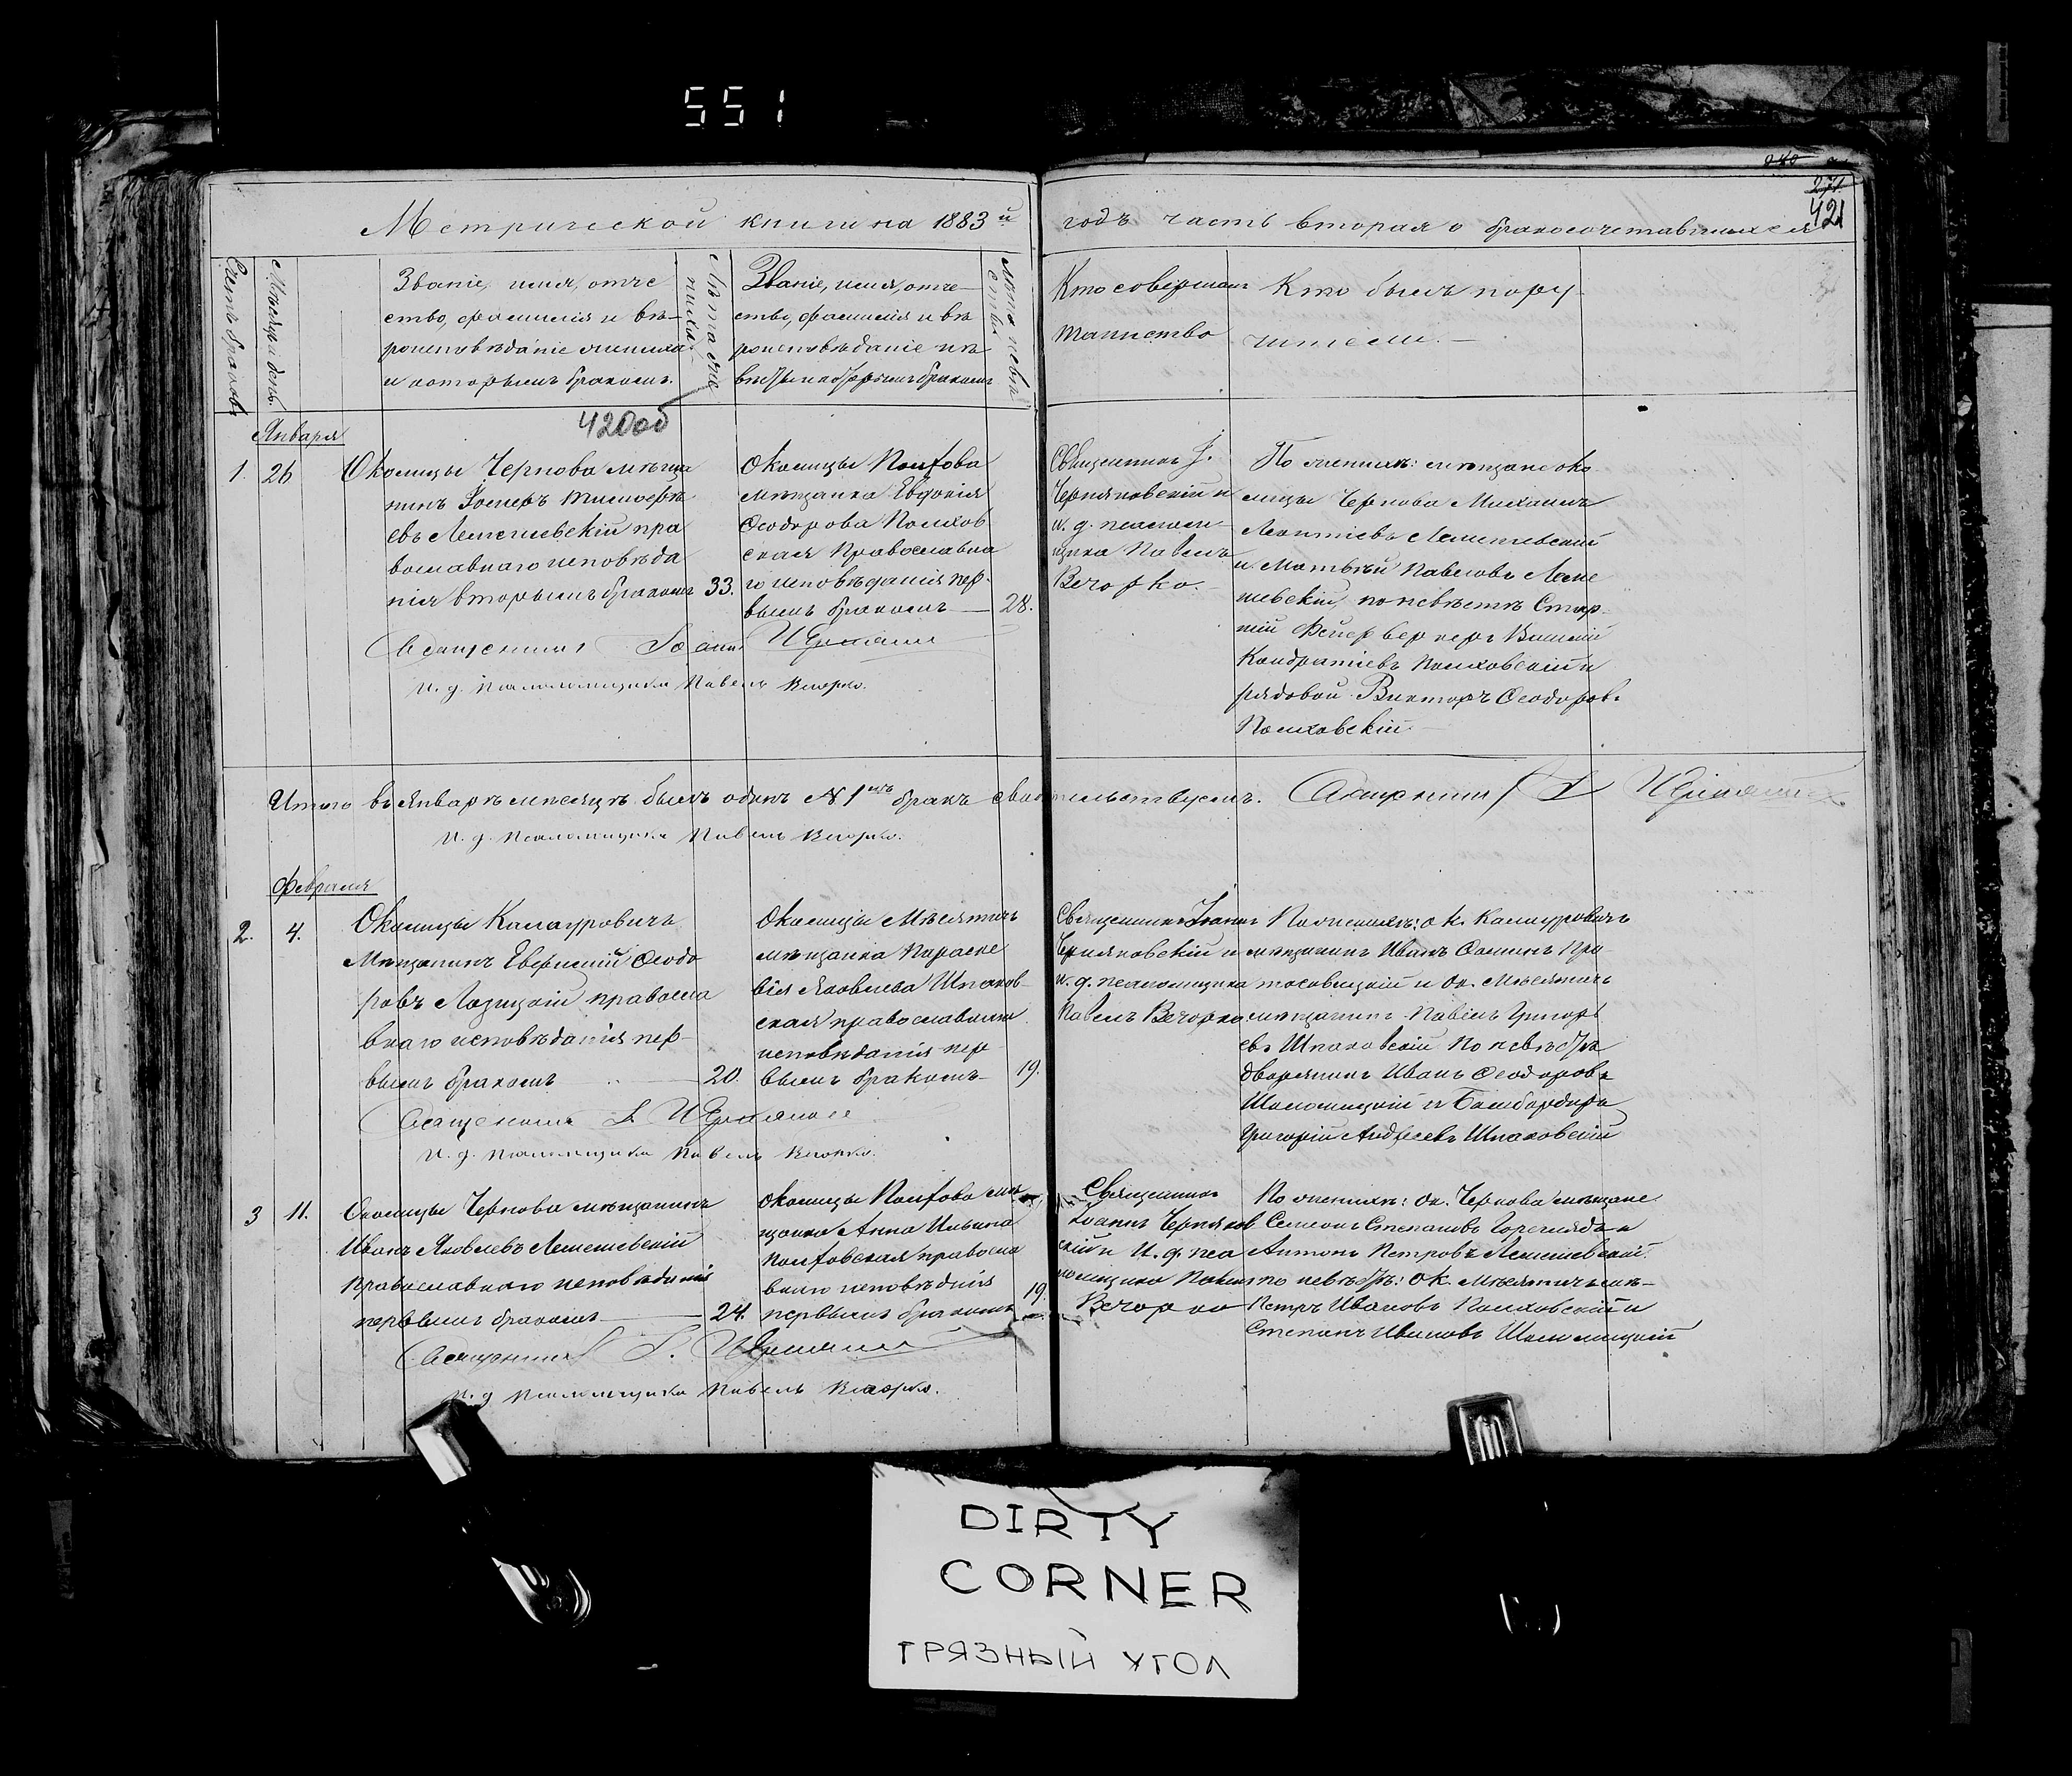 551
240
271
421
Метрической книги на 1883й годъ часть вторая о бракосочетавшихся
Счетъ браковъ
Мѣсяцъ и день.
Званіе, имя, отче
ство, фамилія и вѣ-
роисповѣданіе жениха
и которымъ бракомъ.
Лѣта же
ниха.
Званіе, имя, отче-
ство, фамилія и вѣ
роисповѣданіе не
вѣсты и которымъ бракомъ
Лѣта невѣ
сты
Кто совершалъ
таинство
Кто былъ пору-
чители.
420об
Января
1. 26
Околицы Чернова мѣща
нинъ Тимофѣ
евъ Лемешевскій пра
вославнаго исповѣда
нія вторымъ бракомъ 33.
Околицы Полхова
мѣщанка Евдокія
Ѳеодорова Полхов
ская Православна
го исповѣданія пер-
вымъ бракомъ — 28.
Священникъ І.
Черняковскій и
и. д. псаломщика Павелъ
Вечорко.
По женихѣ: мѣщане око
лицы Чернова Михаилъ
Леонтіевъ Лемешевскій
и Матѳѣй Павловъ Леме
шевскій, по невѣстѣ Стар-
шій Фейерверкеръ
Кондратіевъ Полховскій и
рядовой Викторъ Ѳеодоровъ
Полховскій. —
Священникъ Іоаннъ
И. д. Псаломщика Павелъ Вечорко.
Итого въ Январѣ мѣсяцѣ былъ одинъ № 1мъ бракъ свидѣтельствуемъ. Священникъ І.
И. д. Псаломщика Павелъ Вечорко.
Февраля
2. 4.
Околицы
Мѣщанинъ Евѳимій Ѳеодо
ровъ Лозицкій правосла
внаго исповѣданія пер-
вымъ бракомъ — 20.
Околицы Мѣсятичъ
мѣщанка Параске
вія Яковлева Шпаков-
ская православнаго
исповѣданія пер-
вымъ бракомъ — 19.
Священникъ Іоаннъ
Черняковскій и
и. д. псаломщика
Павелъ Вечорко
По женихѣ: ок.
мѣщанинъ Иванъ Ѳоминъ Про-
тосовицкій и Ок. Мѣсятичъ
мѣщанинъ Павелъ Григорь
евъ Шпаковскій По невѣстѣ
дворянинъ Иванъ Ѳеодоровъ
Шоломицкій и Бомбардиръ
Григорій Андреевъ Шпаковскій
Священникъ І.
И. д. Псаломщика Павелъ Вечорко.
3 11.
Околицы Чернова мѣщанинъ
Иванъ Яковлевъ Лемешевскій
Православнаго исповѣданія
первымъ бракомъ — 24.
Околицы Полхова мѣ
щанка Анна Ильина
Полховская правосла
внаго исповѣданія
первымъ бракомъ 19.
Священникъ
Іоаннъ Черняков
скій и И. д. пса
ломщика Павелъ
Вечорко
По женихѣ: Ок. Чернова мѣщане
Семенъ Степановъ
Антонъ Петровъ Лемешевскій.
по невѣстѣ: Ок. Мѣсятичъ мѣ-
Петръ Ивановъ Полховскій и
Степанъ Ивановъ Шоломицкій
Священникъ І.
И. д Псаломщика Павелъ Вечорко.
DIRTY
CORNER
ГРЯЗНЫЙ УГОЛ